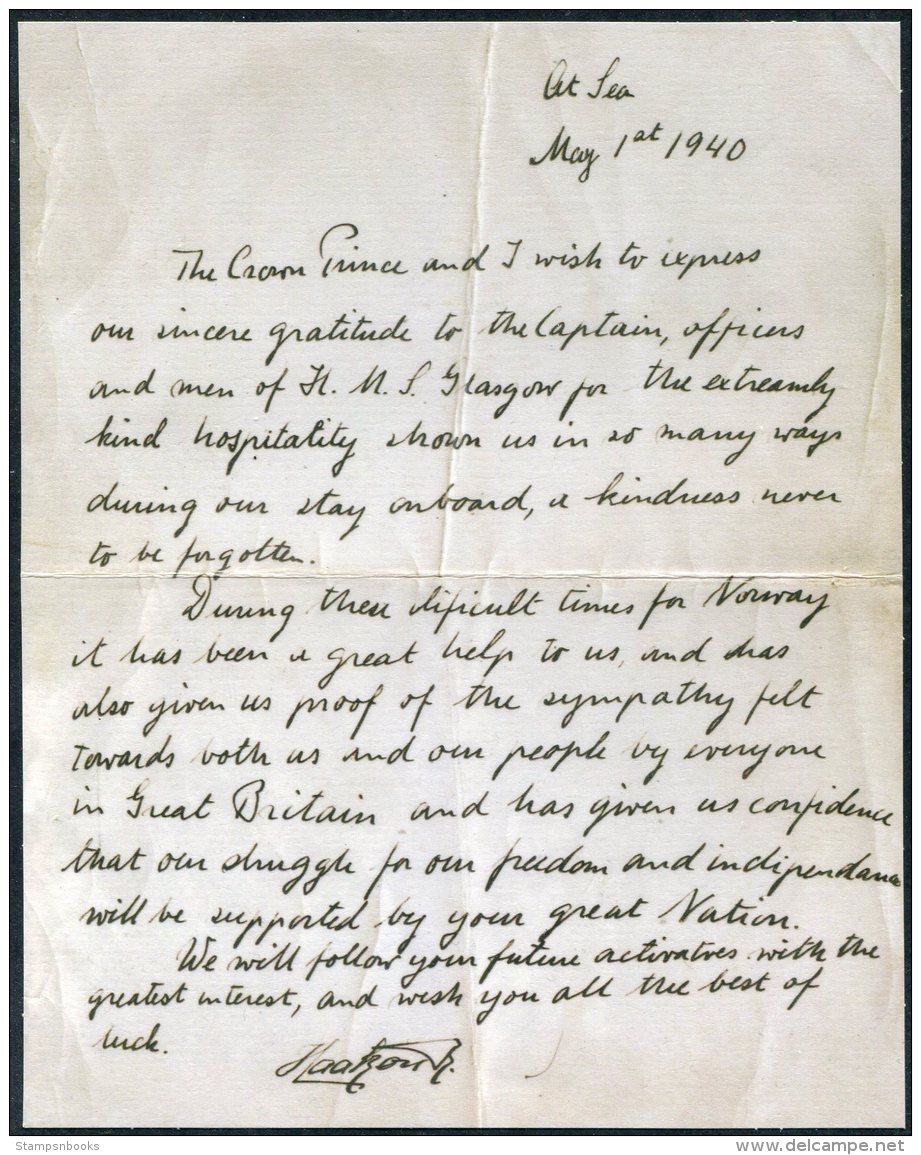 At Sea
May 1st 1940
The Crown Prince and I wish to express
our sincere gratitude to the Captain, officers
and men of H. M. S. Glasgow for the extreamly
kind hospitality shown us in so many ways
during our stay onboard, a kindness never
to be forgotten.
During these dificult times for Norway
it has been a great help to us, and has
also given us proof of the sympathy felt
towards both us and our people by everyone
in Great Britain and has given us confidence
that our struggle for our freedom and indipendance
will be supported by your great Nation.
We will follow your future activatves with the
greatest interest, and wish you all the best of
luck.
Haakon R.
Stampsnbooks
www.delcampe.net